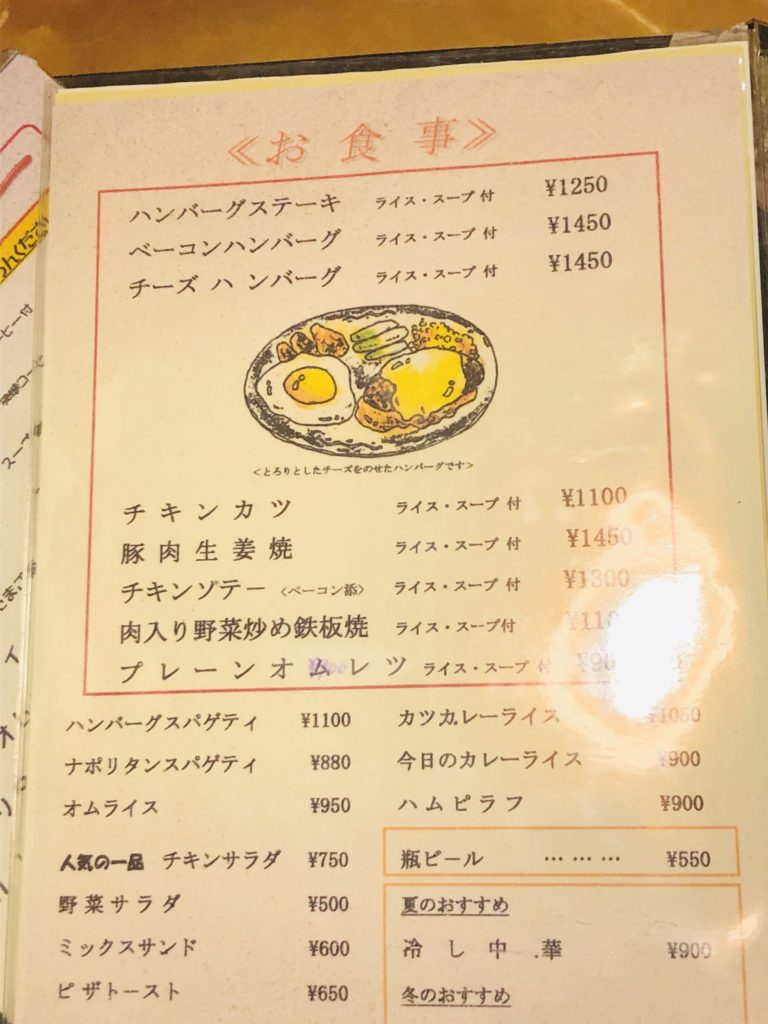 ≪お食事≫
ハンバーグステーキ ライス・スープ 付 ¥1250
ベーコンハンバーグ ライス・スープ 付 ¥1450
チーズ ハンバーグ ライス・スープ 付 ¥1450
＜とろりとしたチーズをのせたハンバーグです＞
チキンカツ ライス・スープ 付 ¥1100
豚肉生姜焼 ライス・スープ 付 ¥1450
チキンソテー ＜ベーコン添＞ ライス・スープ 付 ¥1300
肉入り野菜炒め鉄板焼 ライス・スープ付
プレーンオムレツ ライス・スープ 付
ハンバーグスパゲティ ¥1100
ナポリタンスパゲティ ¥880
オムライス ¥950
人気の一品 チキンサラダ ¥750
野菜サラダ ¥500
ミックスサンド ¥600
ピザトースト ¥650
カツカレーライス ¥1050
今日のカレーライス ¥900
ハムピラフ ¥900
瓶ビール ……… ¥550
夏のおすすめ
冷し中華 ¥900
冬のおすすめ